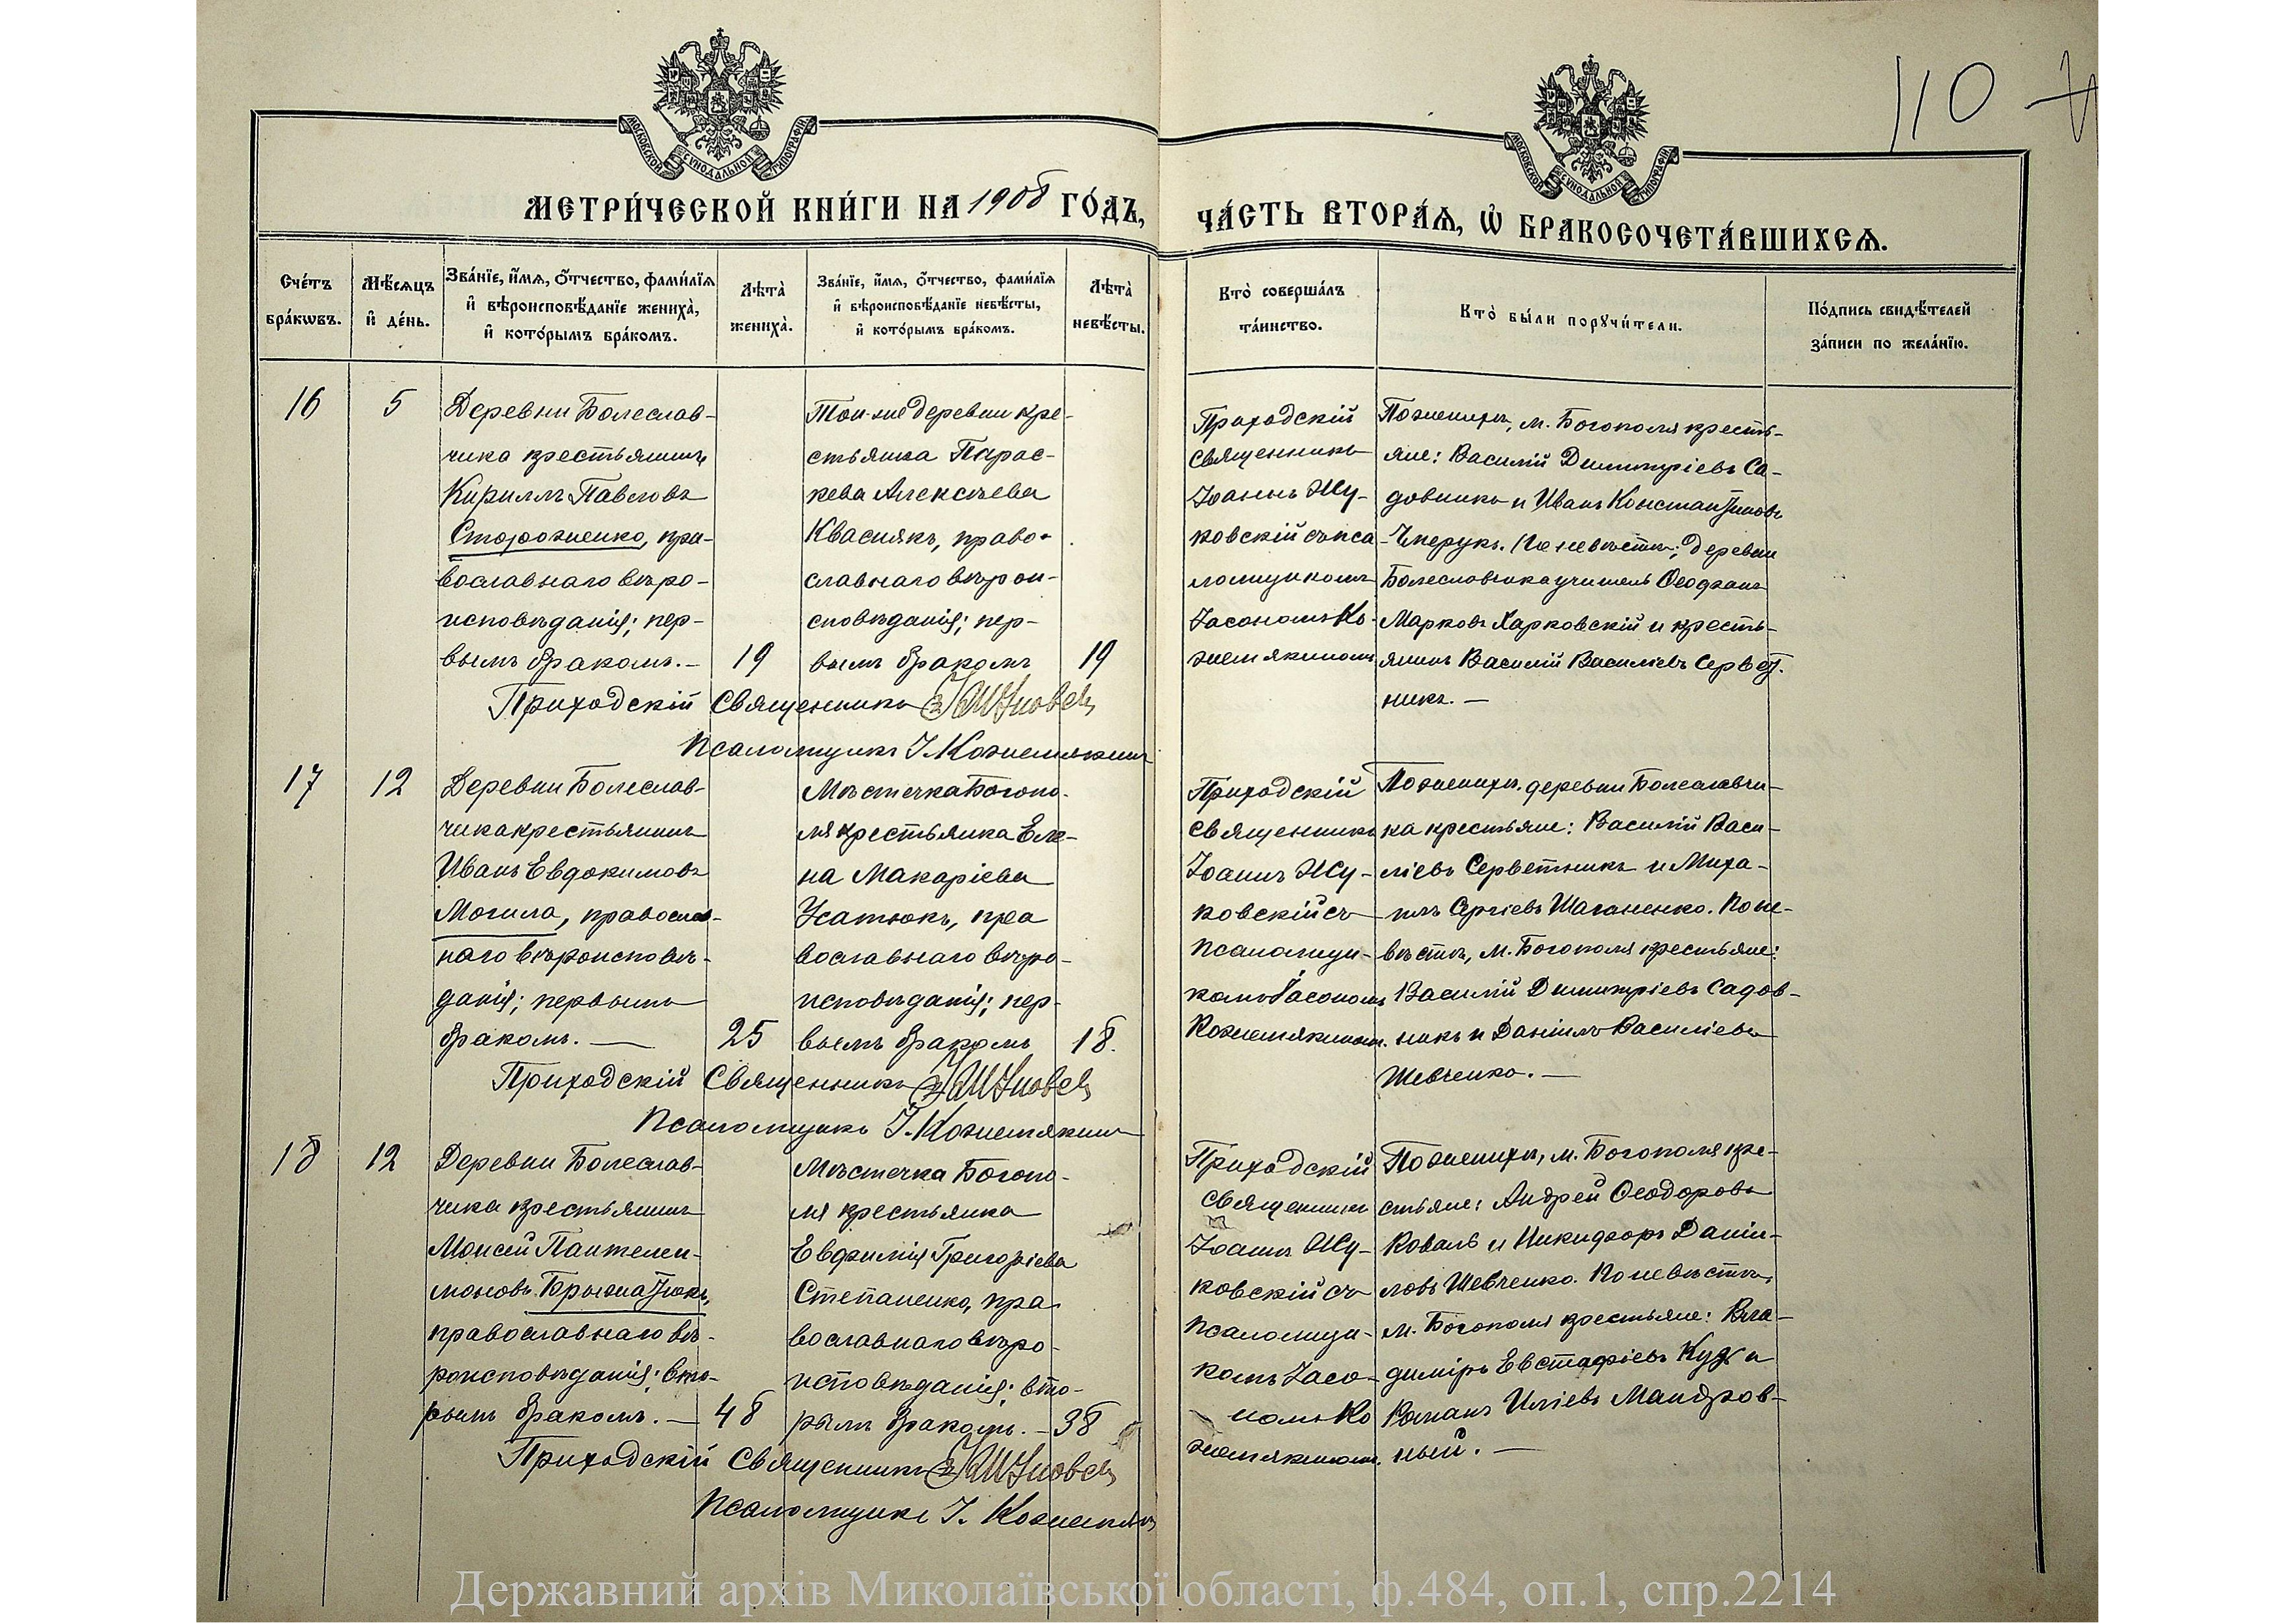 110
МОСКОВСКОЙ СѴНОДАЛЬНОЙ ТИПОГРАФІИ
МОСКОВСКОЙ СѴНОДАЛЬНОЙ ТИПОГРАФІИ
МЕТРИ́ЧЕСКОЙ КНИ́ГИ НА 1908 ГО́ДЪ,
ЧА́СТЬ ВТОРА́Ѧ, Ѡ҆ БРАКОСОЧЕТА́ВШИХСѦ.
Сче́тъ бра́кѡвъ.
Мѣ́сѧцъ и҆ де́нь.
Зва́нїе, и҆́мѧ, ѻ҆́тчество, фами́лїѧ
и҆ вѣроисповѣ́данїе жениха̀,
и҆ кото́рымъ бра́комъ.
Лѣта̀ жениха̀.
Зва́нїе, и҆́мѧ, ѻ҆́тчество, фами́лїѧ
и҆ вѣроисповѣ́данїе невѣ́сты,
и҆ кото́рымъ бра́комъ.
Лѣта̀ невѣ́сты.
Кто̀ соверша́лъ
та́инство.
Кто̀ бы́ли порꙋчи́тели.
По́дпись свидѣ́телей
за́писи по жела́нїю.
16
5
Деревни Болеслав-
чика крестьянинъ
Кириллъ Павловъ
Стороженко, пра-
вославнаго вѣро-
исповѣданія; пер-
вымъ бракомъ.—
19
Той-же деревни кре-
стьянка Парас-
кева Алексѣева
Кваснякъ, право-
славнаго вѣрои-
сповѣданія; пер-
вымъ бракомъ
19
Приходскій
священникъ
Іоаннъ Жу-
ковскій съ пса-
ломщикомъ
Іасономъ Ко-
жемякиномъ
По женихѣ, м. Богополя кресть-
яне: Василій Димитріевъ Са-
довникъ и Иванъ Константиновъ
Чмерукъ. По невѣстѣ: деревни
Болеславчика учитель Ѳеофанъ
Марковъ Харковскій и кресть-
янинъ Василій Василіевъ Сервет-
никъ.—
Приходскій Священникъ
Псаломщикъ І. Кожемякинъ
17
12
Деревни Болеслав-
чика крестьянинъ
Иванъ Евдокимовъ
Могила, православ-
наго вѣроисповѣ-
данія; первымъ
бракомъ.—
25
Мѣстечка Богопо-
ля крестьянка Еле-
на Макаріева
Усатюкъ, пра
вославнаго вѣро-
исповѣданія; пер-
вымъ бракомъ
18.
Приходскій
священникъ
Іоаннъ Жу-
ковскій съ
псаломщи-
комъ Іасономъ
Кожемякиномъ.
По женихѣ, деревни Болеславчи-
ка крестьяне: Василій Васи-
ліевъ Серветникъ и Миха-
илъ Сергіевъ Шаганенко. По не-
вѣстѣ, м. Богополя крестьяне:
Василій Димитріевъ Садов-
никъ и Даніилъ Василіевъ
Шевченко.—
Приходскій Священникъ
Псаломщикъ І. Кожемякинъ
18
12
Деревни Болеслав-
чика крестьянинъ
Моисей Пантелеи-
моновъ Брижатюкъ,
православнаго вѣ-
роисповѣданія; вто-
рымъ бракомъ.—
48
Мѣстечка Богопо-
ля крестьянка
Евфимія Григоріева
Степаненко, пра-
вославнаго вѣро-
исповѣданія; вто-
рымъ бракомъ.—
38
Приходскій
священникъ
Іоаннъ Жу-
ковскій съ
псаломщи-
комъ Іасо-
номъ Ко
жемякиномъ.
По женихѣ, м. Богополя кре-
стьяне: Андрей Ѳеодоровъ
Коваль и Никифоръ Даніи-
ловъ Шевченко. По невѣстѣ,
м. Богополя крестьяне: Вла-
димиръ Евстафіевъ и
Романъ Иліевъ Мандров-
ный.—
Приходскій Священникъ
Псаломщикъ І. Кожемякинъ
Державний архів Миколаївської області, ф.484, оп.1, спр.2214